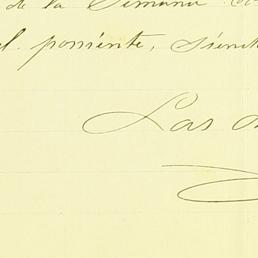 de la Semana
el poniente, siend
Las